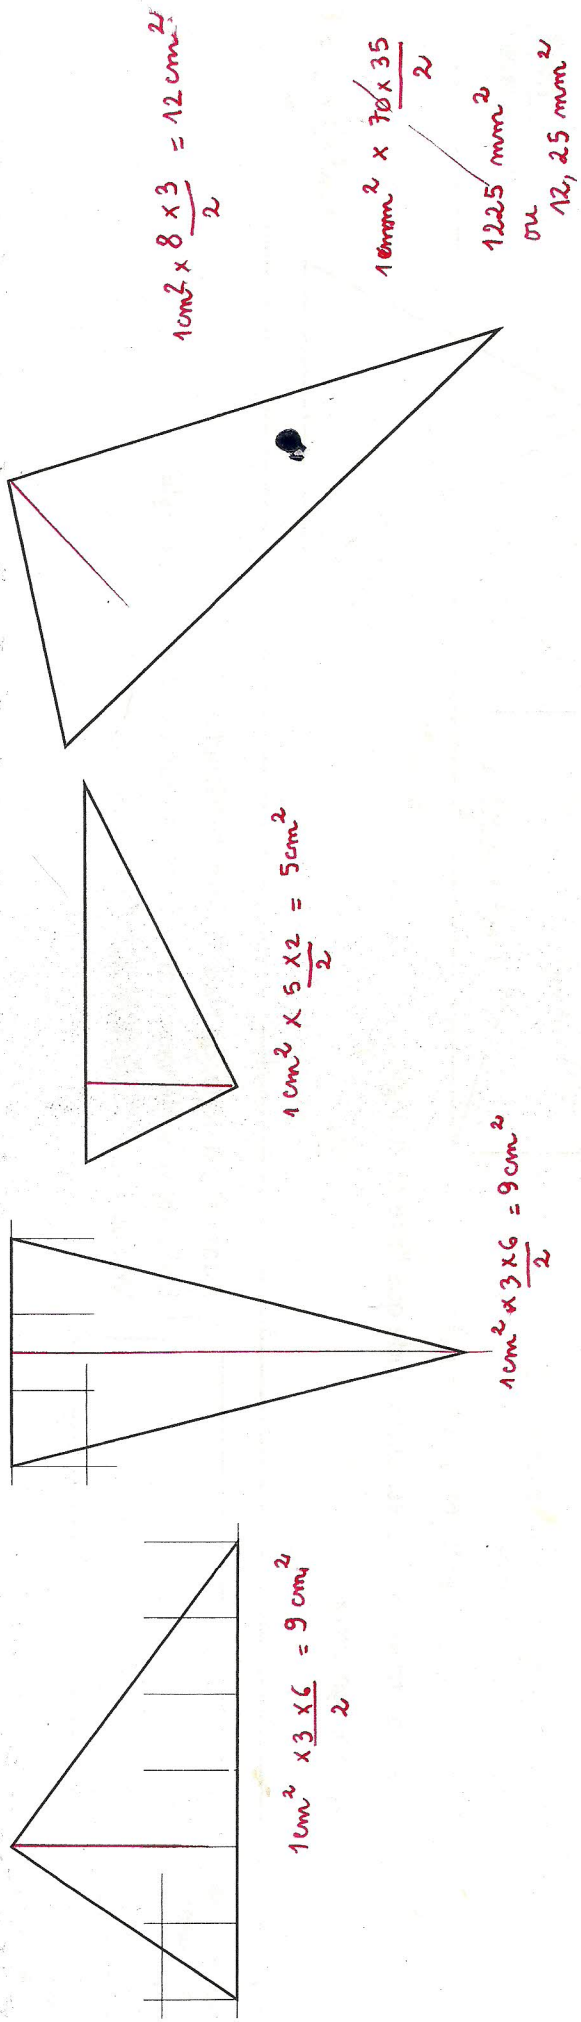 1cm² × 3 × 6 = 9 cm²
2
1cm² × 3 × 6 = 9cm²
2
1cm² × 5 × 2 = 5cm²
2
1cm² × 8 × 3 = 12cm²
2
mm² × 70 × 35
2
1225 mm²
ou
12,25 mm²